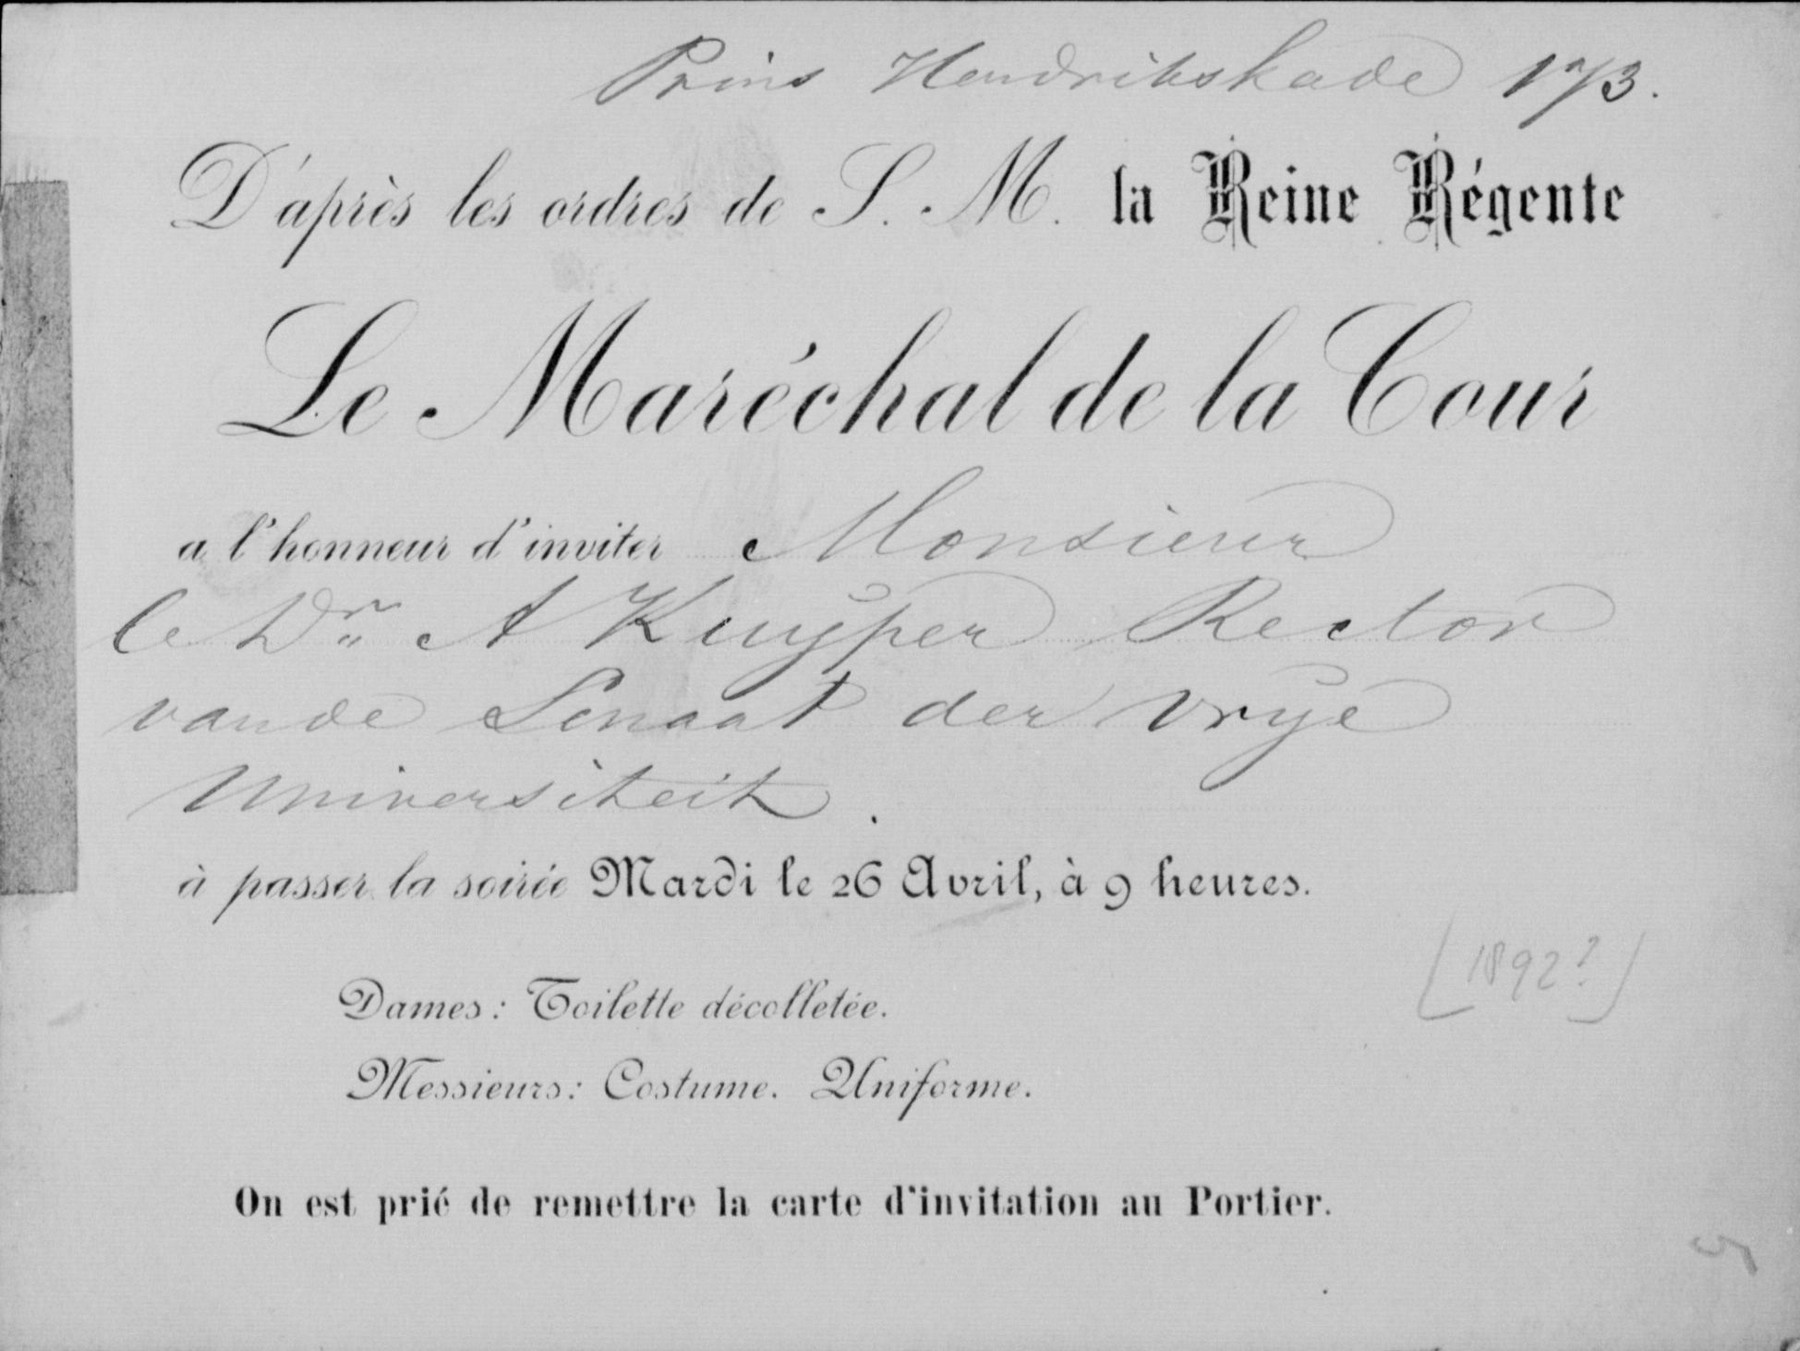 Prins Hendrikskade 173.
D'après les ordres de S. M. la Reine Régente
Le Maréchal de la Cour
a l'honneur d'inviter Monsieur
le Dr. A Kuÿper Rector
van de Senaat der Vrÿe
Universiteit.
à passer la soirée Mardi le 26 Avril, à 9 heures.
[1892?]
Dames: Toilette décolletée.
Messieurs: Costume. Uniforme.
On est prié de remettre la carte d'invitation au Portier.